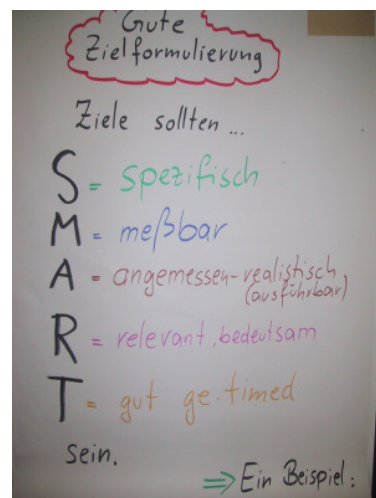 Gute
Zielformulierung
Ziele sollten ...
S = spezifisch
M = meßbar
A = angemessen-realistisch
(ausführbar)
R = relevant, bedeutsam
T = gut ge.timed
sein.
⇒ Ein Beispiel: